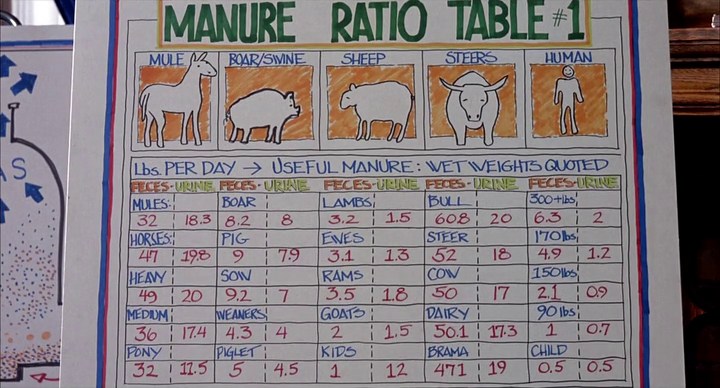 MANURE RATIO TABLE #1
MULE BOAR/SWINE SHEEP STEERS HUMAN
Lbs. PER DAY → USEFUL MANURE: WET WEIGHTS QUOTED
FECES-URINE FECES-URINE FECES-URINE FECES-URINE FECES-URINE
MULES: BOAR LAMBS BULL 300+lbs
32 18.3 8.2 8 3.2 1.5 60.8 20 6.3 2
HORSES: PIG EWES STEER 170lbs
47 19.8 9 7.9 3.1 1.3 52 18 4.9 1.2
HEAVY SOW RAMS COW 150lbs
49 20 9.2 7 3.5 1.8 50 17 2.1 0.9
MEDIUM WEANERS GOATS DAIRY 90lbs
36 17.4 4.3 4 2 1.5 50.1 17.3 1 0.7
PONY PIGLET KIDS BRAMA CHILD
32 11.5 5 4.5 1 12 471 19 0.5 0.5